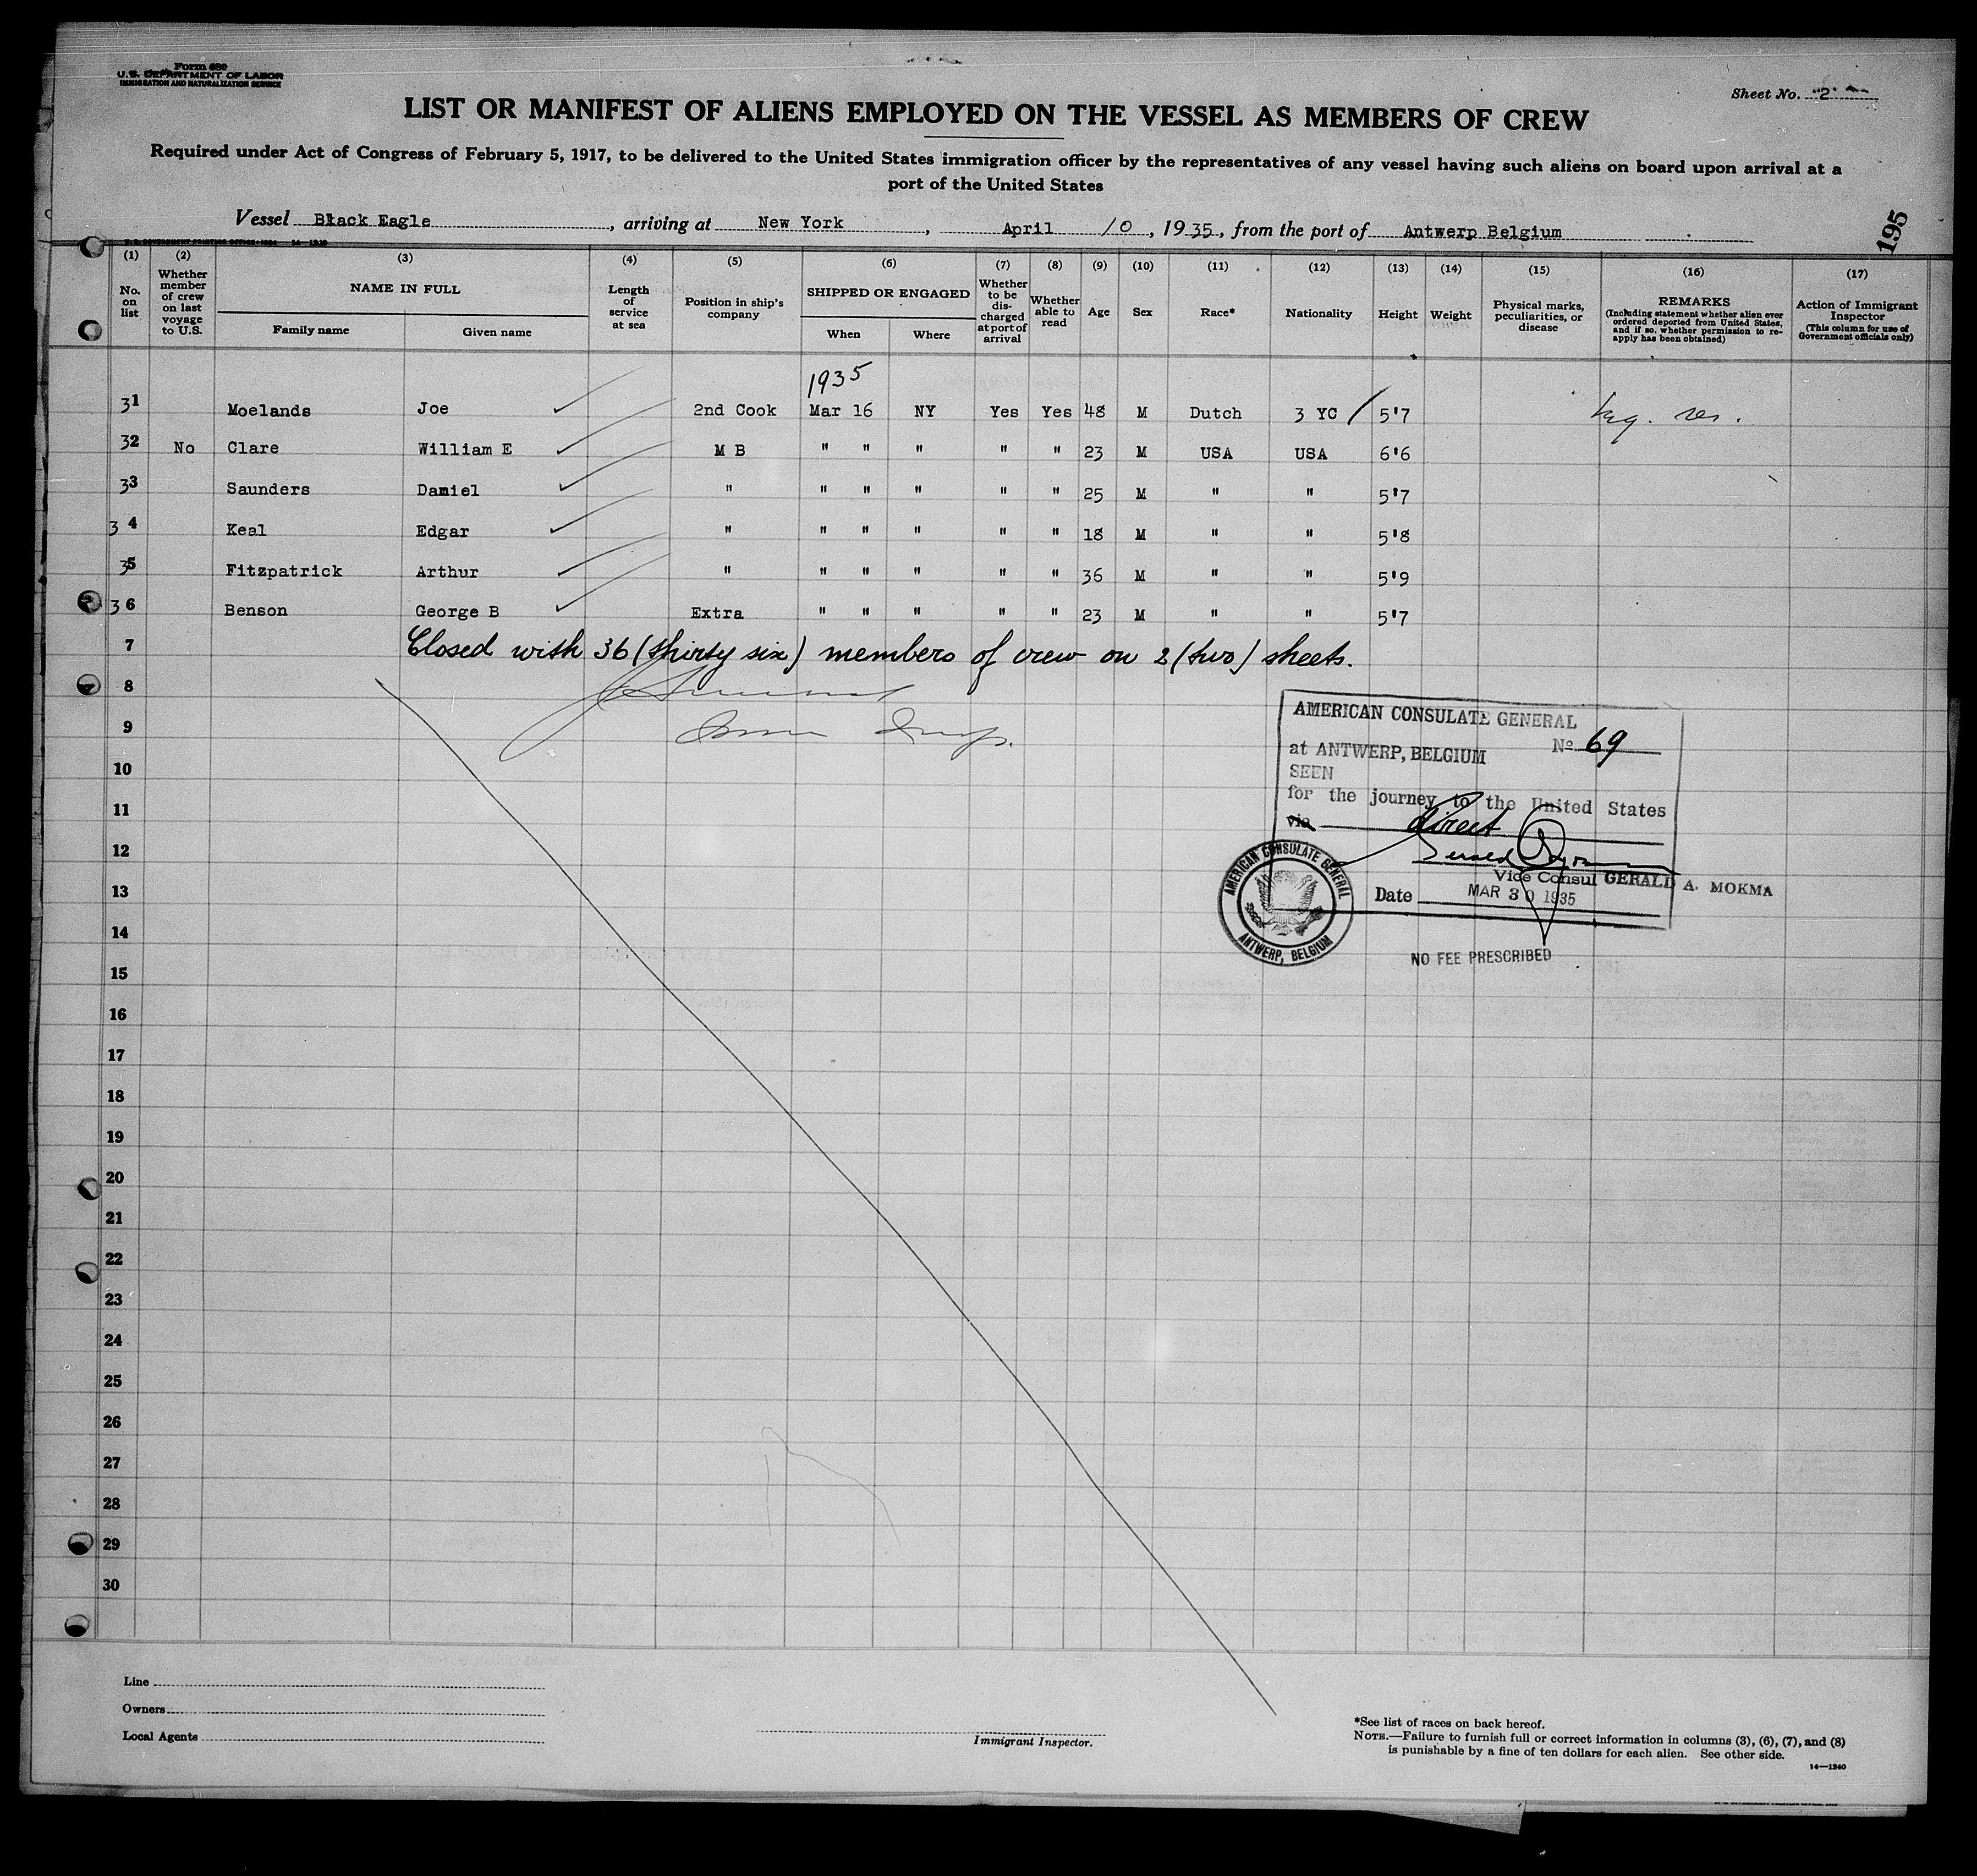 Form 680
U.S. DEPARTMENT OF LABOR
IMMIGRATION AND NATURALIZATION SERVICE
Sheet No. 2
LIST OR MANIFEST OF ALIENS EMPLOYED ON THE VESSEL AS MEMBERS OF CREW
Required under Act of Congress of February 5, 1917, to be delivered to the United States immigration officer by the representatives of any vessel having such aliens on board upon arrival at a
port of the United States
Vessel Black Eagle, arriving at New York, April 10, 1935, from the port of Antwerp Belgium
195
(1) (2) (3) (4) (5) (6) (7) (8) (9) (10) (11) (12) (13) (14) (15) (16) (17)
No. on list
Whether member of crew on last voyage to U.S.
NAME IN FULL
Family name Given name
Length of service at sea
Position in ship's company
SHIPPED OR ENGAGED
When Where
Whether to be discharged at port of arrival
Whether able to read
Age
Sex
Race*
Nationality
Height
Weight
Physical marks, peculiarities, or disease
REMARKS
(Including statement whether alien ever ordered deported from United States, and if so, whether permission to re-apply has been obtained)
Action of Immigrant Inspector
(This column for use of Government officials only)
1935
31 Moelands Joe 2nd Cook Mar 16 NY Yes Yes 48 M Dutch 3 YC 5'7
32 No Clare William E M B " " " " " 23 M USA USA 6'6
33 Saunders Daniel " " " " " " 25 M " " 5'7
34 Keal Edgar " " " " " " 18 M " " 5'8
35 Fitzpatrick Arthur " " " " " " 36 M " " 5'9
36 Benson George B Extra " " " " " 23 M " " 5'7
7 Closed with 36 (thirty six) members of crew on 2 (two) sheets.
8
9
10
11
12
13
14
15
16
17
18
19
20
21
22
23
24
25
26
27
28
29
30
AMERICAN CONSULATE GENERAL
No 69
at ANTWERP, BELGIUM
SEEN
for the journey to the United States
via direct
Vice Consul GERALD A. MOKMA
Date MAR 30 1935
AMERICAN CONSULATE GENERAL
ANTWERP, BELGIUM
NO FEE PRESCRIBED
Line
Owners
Local Agents
Immigrant Inspector.
*See list of races on back hereof.
NOTE.—Failure to furnish full or correct information in columns (3), (6), (7), and (8)
is punishable by a fine of ten dollars for each alien. See other side.
14—1240